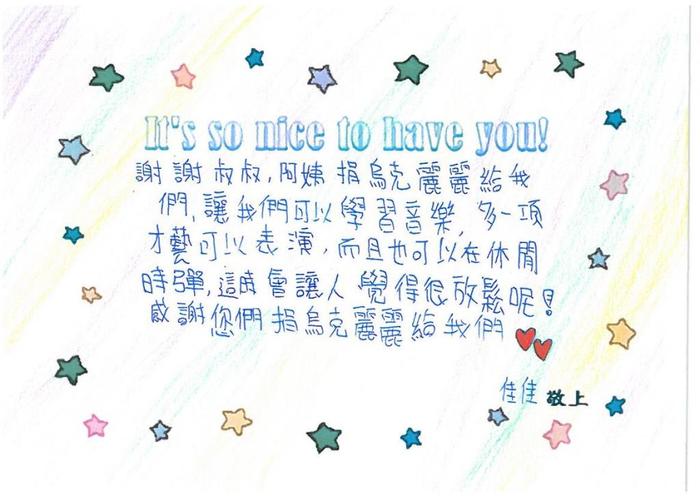 It's so nice to have you!
謝謝叔叔,阿姨捐烏克麗麗給我
們,讓我們可以學習音樂,多一項
才藝可以表演,而且也可以在休閒
時彈,這時會讓人覺得很放鬆呢!
感謝您們捐烏克麗麗給我們
佳佳 敬上